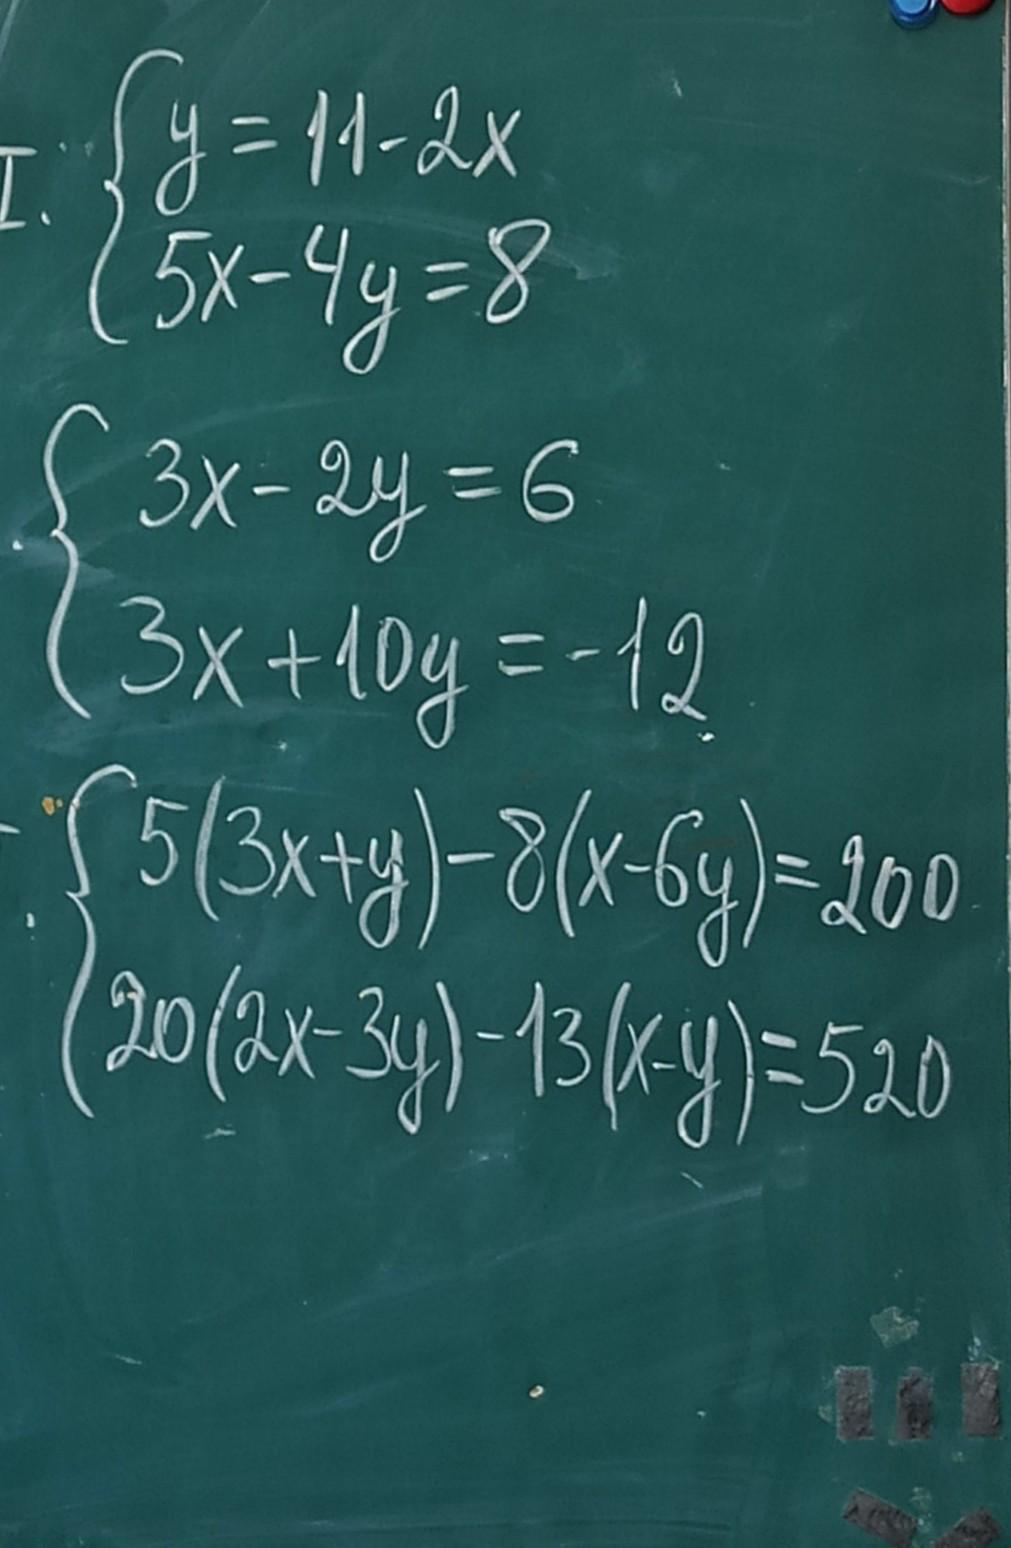 I. { y = 11 - 2x
5x - 4y = 8
. { 3x - 2y = 6
3x + 10y = -12
. { 5(3x+y) - 8(x-6y) = 200
20(2x-3y) - 13(x-y) = 520